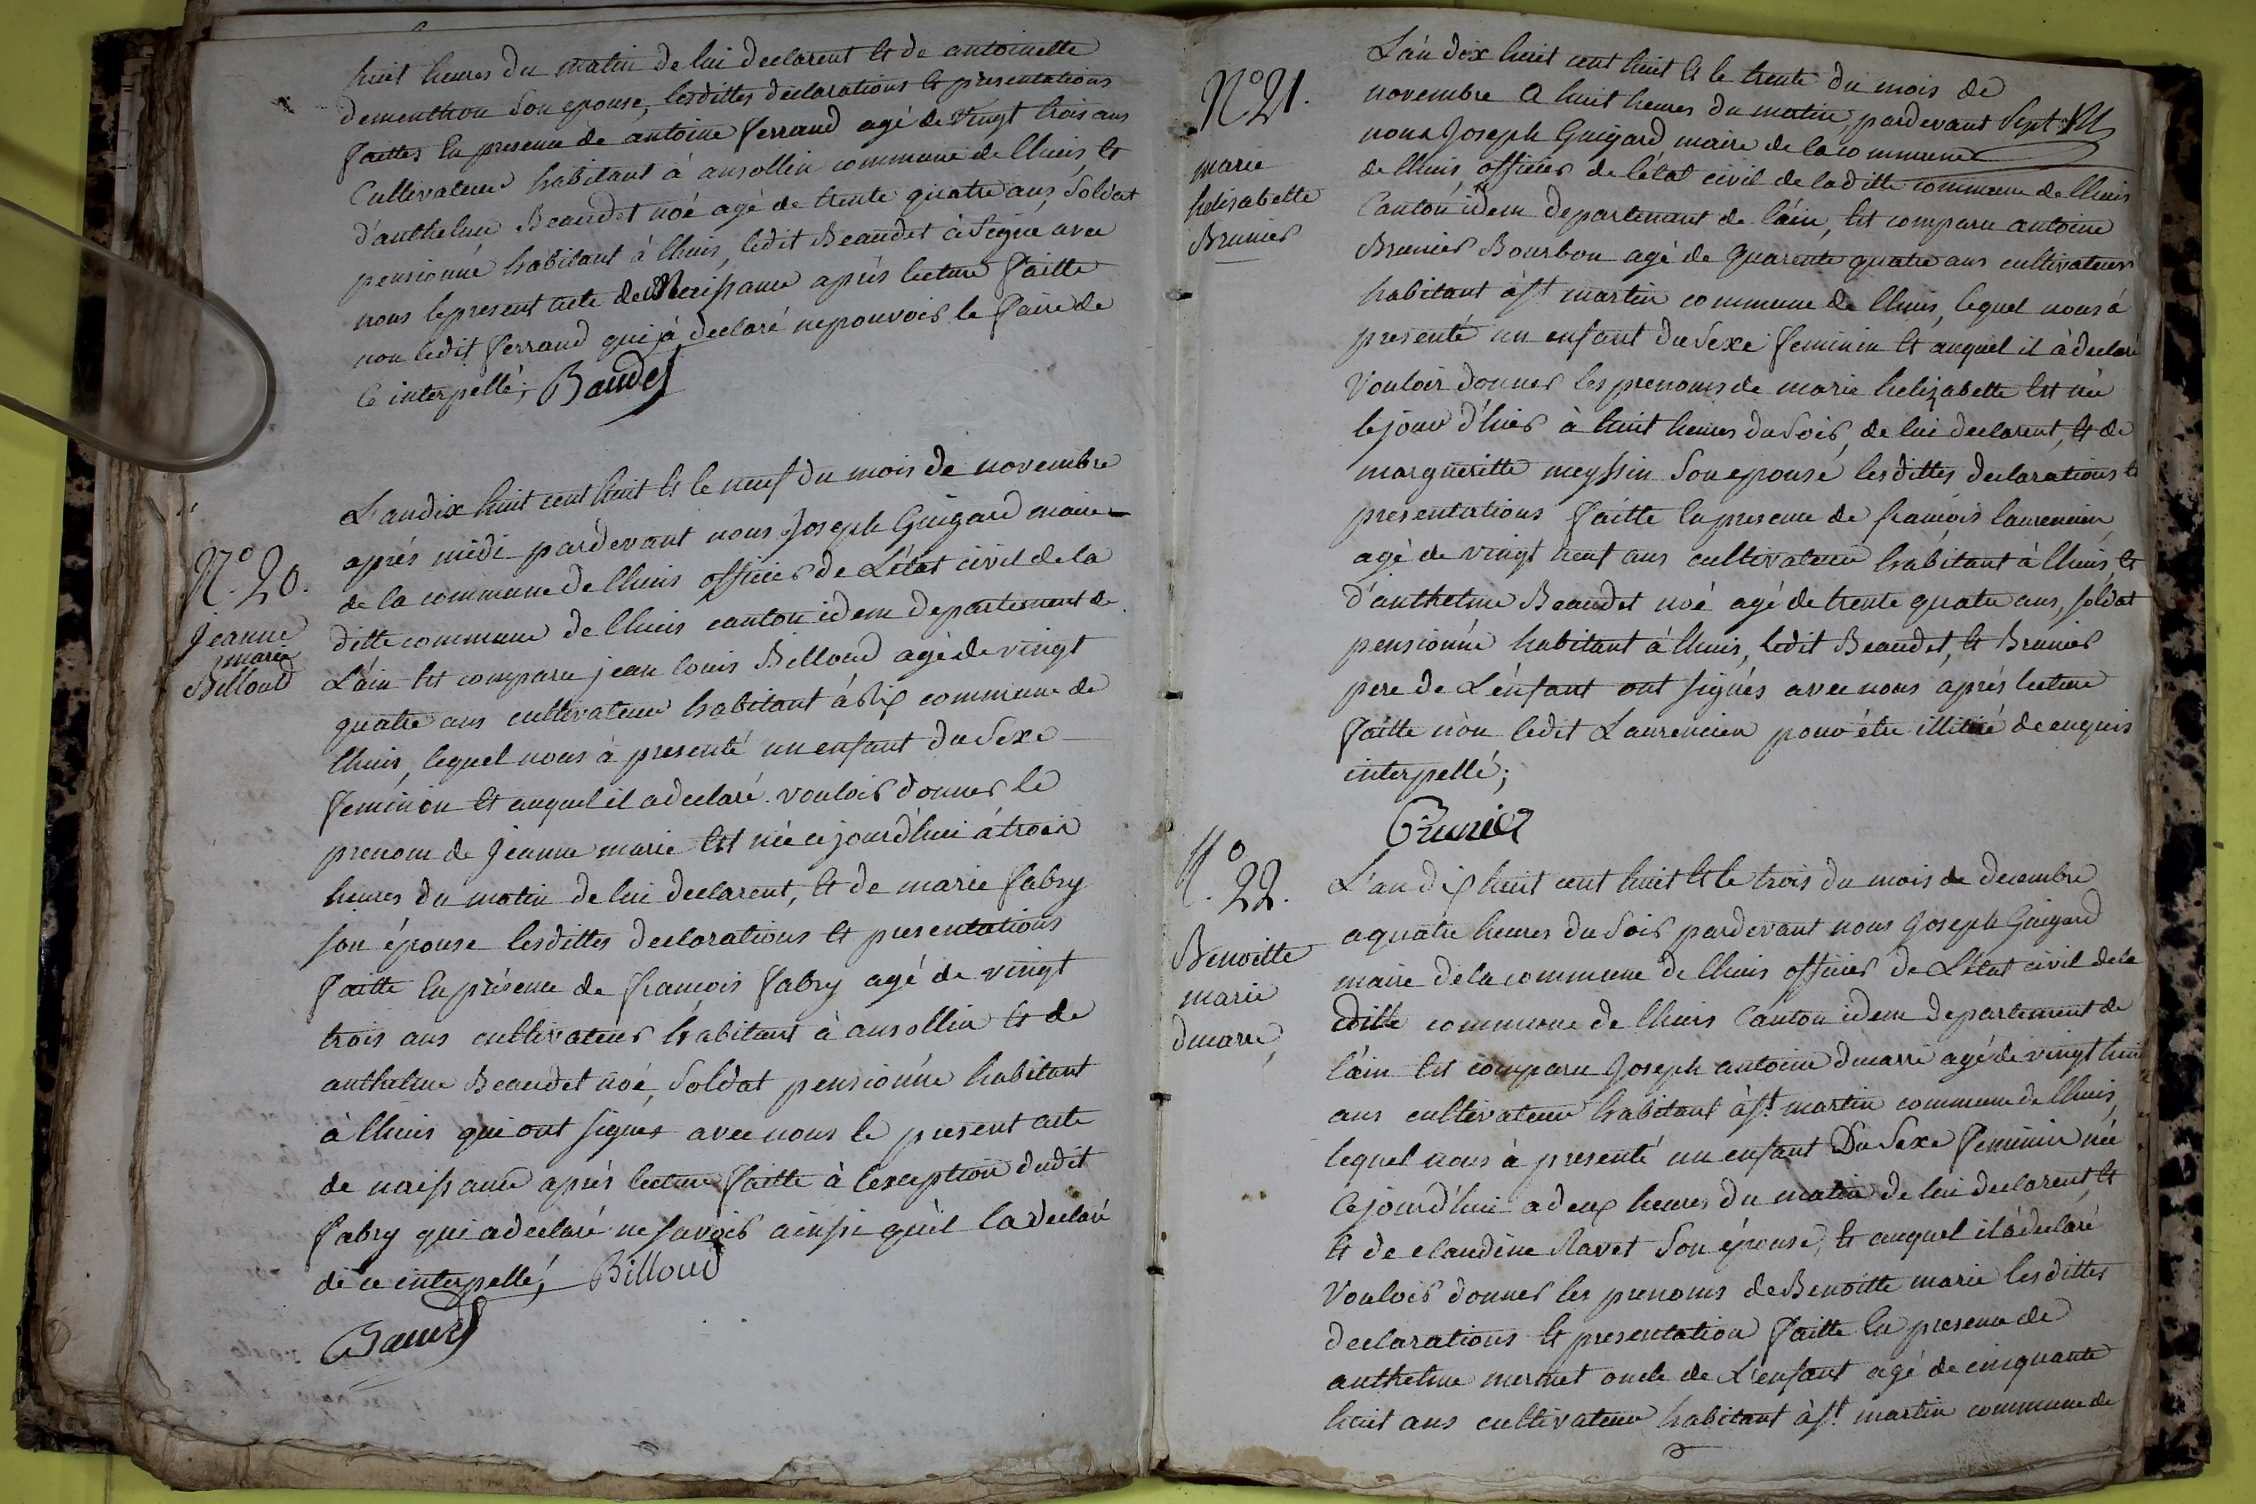 huit heures du matin de lui declarent et de antoinette
dementhon son epouse, lesdittes declarations et presentations
faittes en presence de antoine ferrand agé de vingt trois ans
Cultivateur habitant à ansollin commune de lhuis, et
d'anthelme Beaudet noé agé de trente quatre ans, soldat
pensionné habitant à lhuis, ledit Beaudet à signé avec
nous le present acte de Naissance après lecture faitte
non ledit ferrand qui à declaré ne pouvoir le faire de
Ce interpellé; Baudet
N.º 20.
jeanne
marie
Billoud
L'an dix huit cent huit et le neuf du mois de novembre
aprés midi pardevant nous Joseph Guigard maire
de la commune de lhuis officier de L'état civil de la
ditte commune de lhuis canton idem departement de
L'áin est comparu jean louis Billoud agé de vingt
quatre ans cultivateur habitant á commune de
lhuis, lequel nous à presenté un enfant du Sexe
feminin et auquel il a declaré vouloir donner le
prenom de Jeanne marie est née ce jourd'hui à trois
heures du matin de lui declarent, et de marie fabry
son épouse lesdittes declarations et presentations
faitte en présence de francois fabry agé de vingt
trois ans cultivateur habitant à ansollin et de
anthelme Beaudet noé, Soldat pensionnée habitant
à lhuis qui ont signés avec nous le present acte
de naissance aprés lecture faitte à l'exception dudit
fabry qui a declaré ne savoir ainsi qu'il la declaré
de ce interpellé, Billoud
Baudet
Nº 21.
marie
helisabette
Brunier
L'an dix huit cent huit et le trente du mois de
novembre a huit heures du matin, pardevant
nous Joseph Guigard maire de la commune
de lhuis, officier de l'état civil de laditte commune de lhuis
Canton idem departement de l'áin, est comparu antoine
Brunier Bourbon agé de quarente quatre ans cultivateur
habitant à st martin commune de lhuis, lequel nous à
presenté un enfant du Sexe feminin et auquel il à declaré
Vouloir donner les prenoms de marie helizabette est née
le jour d'hier à huit heures du soir, de lui declarent, et de
margueritte meyssin son epouse lesdittes declarations et
presentations faitte en presence de francois laurencien
agé de vingt neuf ans cultivateur habitant à lhuis, et
d'anthelme Beaudet noé agé de trente quatre ans, soldat
pensionnée habitant á lhuis, ledit Beaudet, et Brunier
pere de L'enfant ont signés avec nous aprés lecture
faitte non ledit Laurencien pour étre illitiré de enquis
interpellé;
Brunier
Nº 22.
Benoitte
marie
dmarre
L'an dix huit cent huit et le trois du mois de decembre
a quatre heures du soir pardevant nous Joseph Guigard
maire de la commune de lhuis officier de L'état civil de la
ditte commune de lhuis Canton idem departement de
l'áin est comparu Joseph antoine dmarre agé de vingt huit
ans cultivateur habitant à st martin commune de lhuis,
lequel nous à presenté un enfant Du Sexe feminin née
Ce jourd'hui a deux heures du matin de lui declarent, et
et de claudine Ravet son épouse, et auquel il à declaré
Vouloir donner les prenoms de Benoitte marie lesdittes
declarations et presentation faitte en presence de
anthelme mermet oncle de L'enfant agé de cinquante
huit ans cultivateur habitant à st martin commune de